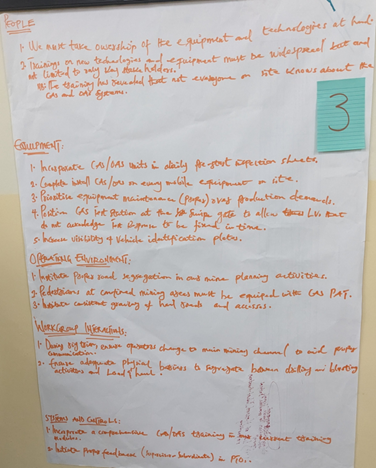 PEOPLE
1. We must take ownership of the equipment and technologies at hand.
2. Trainings on new technologies and equipment must be widespread and
not limited to only key stakeholders.
The training has revealed that not everyone on site knows about the
CAS and OAS systems.
3
EQUIPMENT:
1. Incorporate CAS/OAS units in daily pre-start inspection sheets.
2. Complete install CAS/OAS on every mobile equipment on site.
3. Prioritise equipment maintenance (Proper) over production demands.
4. Position CAS test station at the gate to allow LVs that
do not acknowledge to be fixed in time.
5. Increase visibility of vehicle identification plates.
OPERATING ENVIRONMENT:
1. Institute proper road segregation in our mine planning activities.
2. Pedestrians at confined mining areas must be equipped with CAS PAT.
3. Institute consistent grading of haul roads and accesses.
WORKGROUP INTERACTIONS:
1. During dig ensure operators change to main mining channel to aid proper
communication.
2. Ensure adequate physical barriers to segregate between drilling and blasting
activities and Load & haul.
SYSTEMS AND CONTROLS:
1. Incorporate a comprehensive CAS/OAS training in current training
modules.
2. Initiate proper feedback (Superior-Subordinate) in PTO.